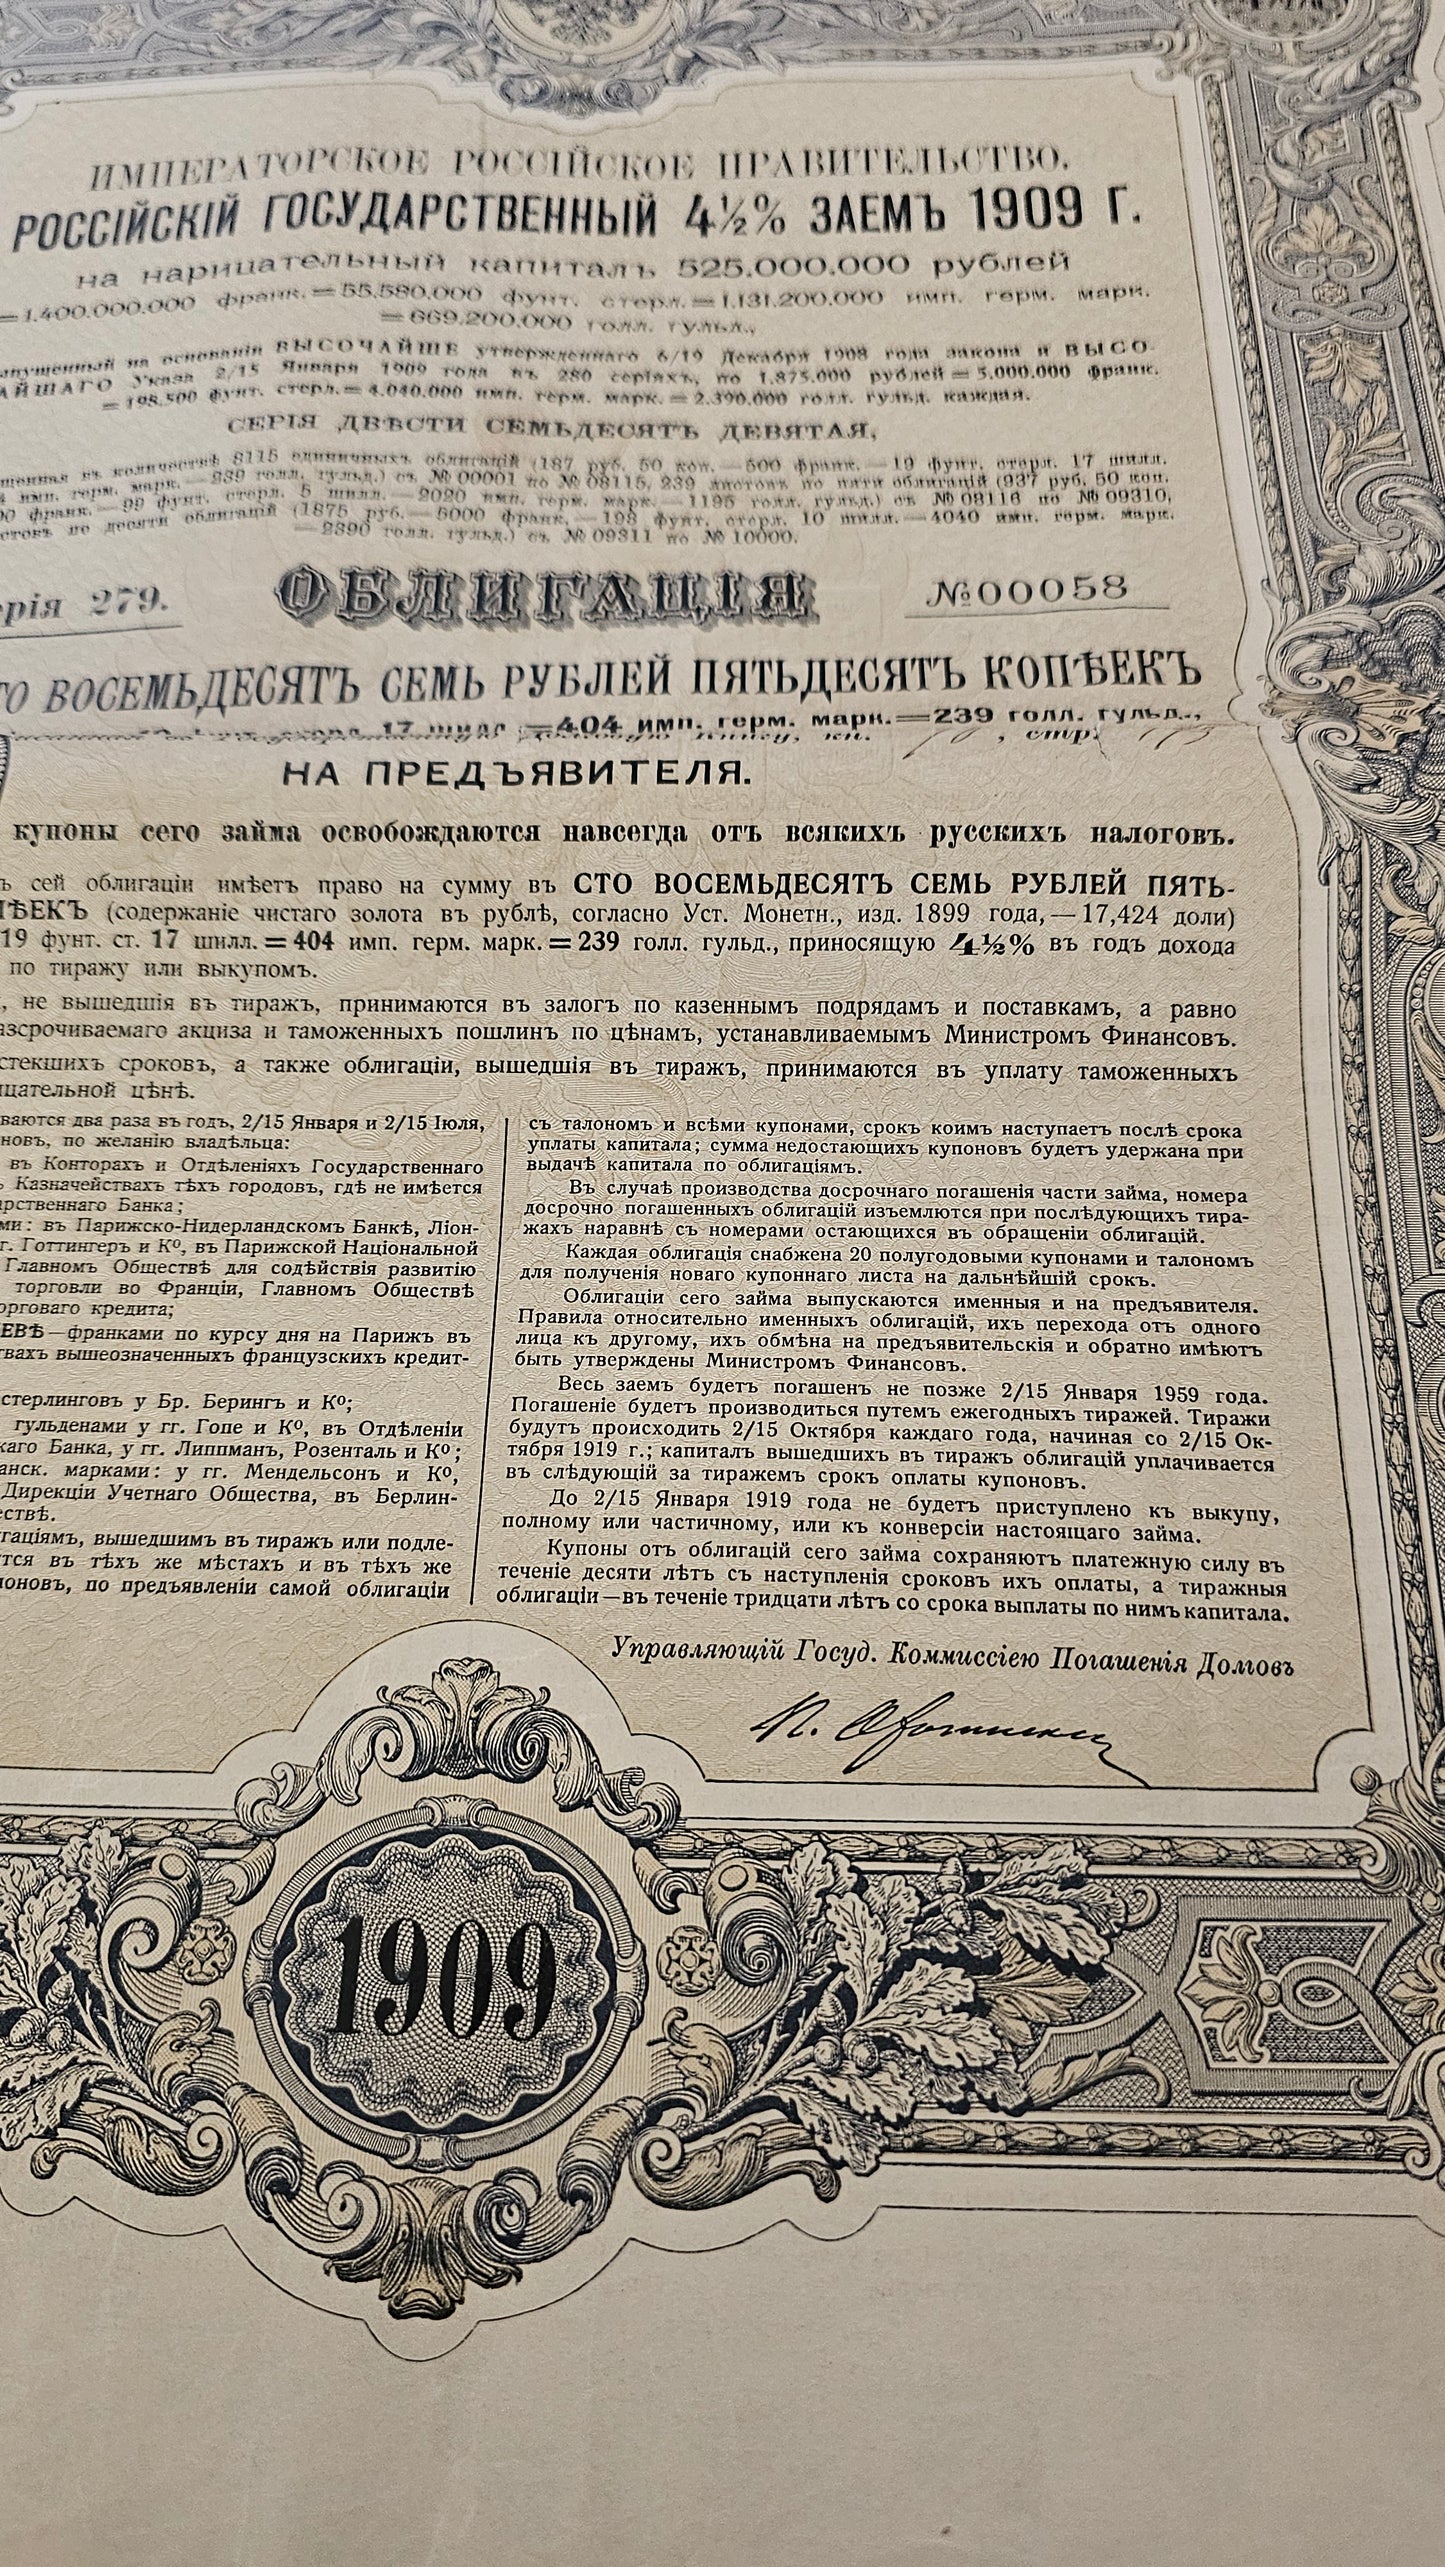 ИМПЕРАТОРСКОЕ РОССІЙСКОЕ ПРАВИТЕЛЬСТВО.
РОССІЙСКІЙ ГОСУДАРСТВЕННЫЙ 4½% ЗАЕМЪ 1909 Г.
на нарицательный капиталъ 525.000.000 рублей
=1.400.000.000 франк.=55.580.000 фунт. стерл.=1.131.200.000 имп. герм. марк.
=669.200.000 голл. гульд.,
на основаніи ВЫСОЧАЙШЕ утвержденнаго 6/19 Декабря 1908 года закона и ВЫСО-
АЙШАГО Указа 2/15 Января 1909 года въ 280 серіяхъ, по 1.875.000 рублей=5.000.000 франк.
=198.500 фунт. стерл.=4.040.000 имп. герм. марк.=2.390.000 голл. гульд. каждая.
СЕРІЯ ДВѢСТИ СЕМЬДЕСЯТЪ ДЕВЯТАЯ,
въ количествѣ 8115 единичныхъ облигацій (187 руб. 50 коп.—500 франк.—19 фунт. стерл. 17 шилл.
имп. герм. марк.—239 голл. гульд.) съ №00001 по №08115, 239 листовъ по пяти облигацій (937 руб. 50 коп.
франк.—99 фунт. стерл. 5 шилл.—2020 имп. герм. марк.—1195 голл. гульд.) съ №08116 по №09310,
по десяти облигацій (1875 руб.—5000 франк.—198 фунт. стерл. 10 шилл.—4040 имп. герм. марк.
—2390 голл. гульд.) съ №09311 по №10000.
ерія 279. ОБЛИГАЦІЯ №00058
ТО ВОСЕМЬДЕСЯТЪ СЕМЬ РУБЛЕЙ ПЯТЬДЕСЯТЪ КОПѢЕКЪ
17 шилл.=404 имп. герм. марк.=239 голл. гульд.,
НА ПРЕДЪЯВИТЕЛЯ.
купоны сего займа освобождаются навсегда отъ всякихъ русскихъ налоговъ.
ь сей облигаціи имѣетъ право на сумму въ СТО ВОСЕМЬДЕСЯТЪ СЕМЬ РУБЛЕЙ ПЯТЬ-
ПѢЕКЪ (содержаніе чистаго золота въ рублѣ, согласно Уст. Монетн., изд. 1899 года,—17,424 доли)
19 фунт. ст. 17 шилл.=404 имп. герм. марк.=239 голл. гульд., приносящую 4½% въ годъ дохода
по тиражу или выкупомъ.
, не вышедшія въ тиражъ, принимаются въ залогъ по казеннымъ подрядамъ и поставкамъ, а равно
азсрочиваемаго акциза и таможенныхъ пошлинъ по цѣнамъ, устанавливаемымъ Министромъ Финансовъ.
стекшихъ сроковъ, а также облигаціи, вышедшія въ тиражъ, принимаются въ уплату таможенныхъ
цательной цѣнѣ.
ваются два раза въ годъ, 2/15 Января и 2/15 Іюля,
новъ, по желанію владѣльца:
въ Конторахъ и Отдѣленіяхъ Государственнаго
ъ Казначействахъ тѣхъ городовъ, гдѣ не имѣется
арственнаго Банка;
ми: въ Парижско-Нидерландскомъ Банкѣ, Ліон-
г. Готтингеръ и Ко, въ Парижской Національной
Главномъ Обществѣ для содѣйствія развитію
торговли во Франціи, Главномъ Обществѣ
орговаго кредита;
ЕВѢ—франками по курсу дня на Парижъ въ
твахъ вышеозначенныхъ французскихъ кредит-
стерлинговъ у Бр. Берингъ и Ко;
гульденами у гг. Гопе и Ко, въ Отдѣленіи
каго Банка, у гг. Липпманъ, Розенталь и Ко;
анск. марками: у гг. Мендельсонъ и Ко,
Дирекціи Учетнаго Общества, въ Берлин-
ествѣ.
гаціямъ, вышедшимъ въ тиражъ или подле-
тся въ тѣхъ же мѣстахъ и въ тѣхъ же
поновъ, по предъявленіи самой облигаціи
съ талономъ и всѣми купонами, срокъ коимъ наступаетъ послѣ срока
уплаты капитала; сумма недостающихъ купоновъ будетъ удержана при
выдачѣ капитала по облигаціямъ.
Въ случаѣ производства досрочнаго погашенія части займа, номера
досрочно погашенныхъ облигацій изъемлются при послѣдующихъ тира-
жахъ наравнѣ съ номерами остающихся въ обращеніи облигацій.
Каждая облигація снабжена 20 полугодовыми купонами и талономъ
для полученія новаго купоннаго листа на дальнѣйшій срокъ.
Облигаціи сего займа выпускаются именныя и на предъявителя.
Правила относительно именныхъ облигацій, ихъ перехода отъ одного
лица къ другому, ихъ обмѣна на предъявительскія и обратно имѣютъ
быть утверждены Министромъ Финансовъ.
Весь заемъ будетъ погашенъ не позже 2/15 Января 1959 года.
Погашеніе будетъ производиться путемъ ежегодныхъ тиражей. Тиражи
будутъ происходить 2/15 Октября каждаго года, начиная со 2/15 Ок-
тября 1919 г.; капиталъ вышедшихъ въ тиражъ облигацій уплачивается
въ слѣдующій за тиражемъ срокъ оплаты купоновъ.
До 2/15 Января 1919 года не будетъ приступлено къ выкупу,
полному или частичному, или къ конверсіи настоящаго займа.
Купоны отъ облигацій сего займа сохраняютъ платежную силу въ
теченіе десяти лѣтъ съ наступленія сроковъ ихъ оплаты, а тиражныя
облигаціи—въ теченіе тридцати лѣтъ со срока выплаты по нимъ капитала.
Управляющій Госуд. Коммиссіею Погашенія Долговъ
1909